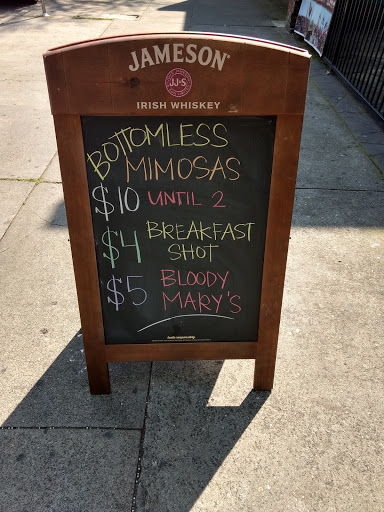 JAMESON
JJ&S
IRISH WHISKEY
BOTTOMLESS
MIMOSAS
$10 UNTIL 2
$4 BREAKFAST
SHOT
$5 BLOODY
MARY'S